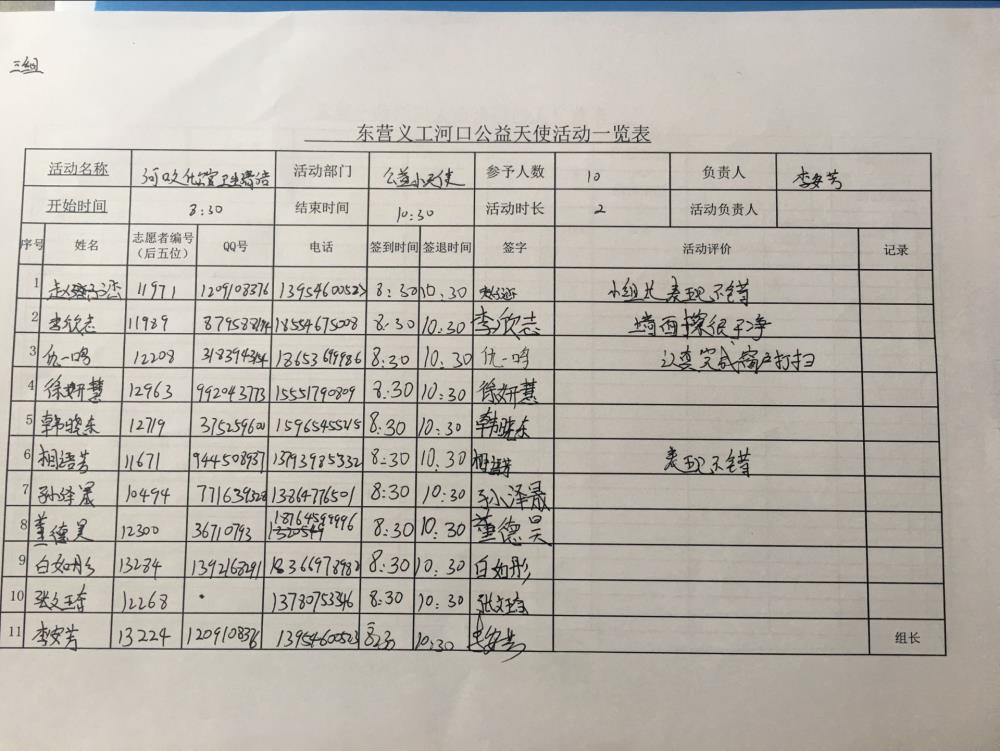 三组
东营义工河口公益天使活动一览表
活动名称 活动部门 公益小天使 参予人数 10 负责人 李安芳
开始时间 8:30 结束时间 10:30 活动时长 2 活动负责人
序号 姓名 志愿者编号（后五位） QQ号 电话 签到时间 签退时间 签字 活动评价 记录
1 11971 1209108376 13954600523 8:30 10:30 小组长 表现不错
2 李欣志 11989 18554675008 8:30 10:30 李欣志 墙面擦很干净
3 仇一鸣 12208 18653699986 8:30 10:30 仇一鸣 认真完成窗户打扫
4 徐妍慧 12963 992043773 15551790809 8:30 10:30 徐妍慧
5 韩晓东 12719 375259600 15965455525 8:30 10:30 韩晓东
6 11671 944508937 13793985332 8:30 10:30 表现不错
7 孙泽晟 10494 771639328 13864776501 8:30 10:30 孙泽晟
8 董德昊 12300 36710793 18764599996 8:30 10:30 董德昊
9 白如彤 13284 1392168291 18366978982 8:30 10:30 白如彤
10 12268 13780753346 8:30 10:30
11 李安芳 13224 1209108376 13954600523 10:30 李安芳 组长